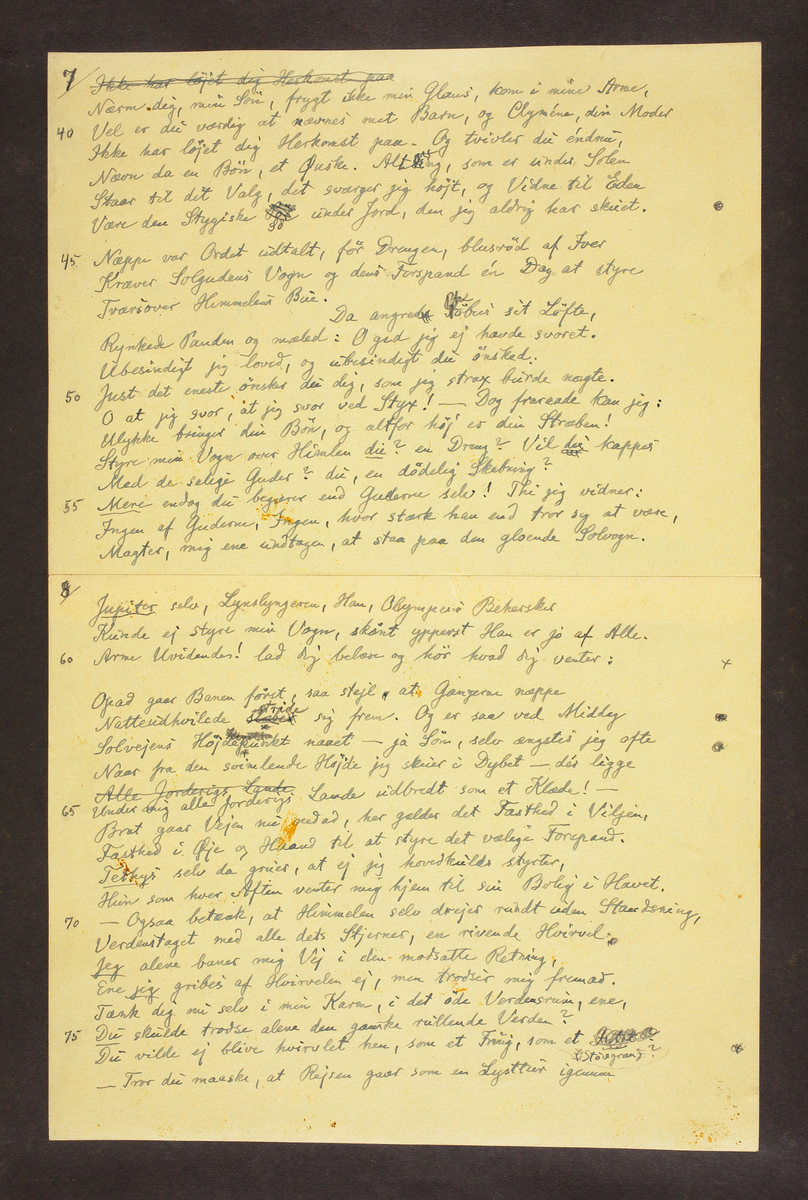 7/ Ikke har løjet dig Herkomst paa
Nærm dig, min Søn, frygt ikke min Glans, kom i mine Arme,
40 Vel er du værdig at nævnes mit Barn, og Clyméne, din Moder
Ikke har løjet dig Herkomst paa. Og tvivler du éndnu,
Nævn da en Bøn, et Ønske. Alting, som er under Solen
Staar til dit Valg, det sværger jeg højt, og Vidne til Eden
Være den Stygiske under Jord, den jeg aldrig har skuet.
45 Næppe var Ordet udtalt, før Drengen, blusrød af Iver
Kræver Solgudens Vogn og dens Forspand én Dag at styre
Tværsover Himmelens Bue.
Da angrede Føbus sit Løfte,
Rynkede Panden og mæled: O gid jeg ej havde svoret.
Ubesindigt jeg loved, og ubesindigt du ønsked.
50 Just det eneste ønsker du dig, som jeg strax burde nægte.
O at jeg svor, at jeg svor ved Styx! — Dog fraraade kan jeg:
Ulykke bringer din Bøn, og altfor høj er din Stræben!
Styre min Vogn over Himlen du? en Dreng? Vil du kappes
Med de salige Guder? du, en dødelig Skabning?
55 Mere endog du begærer end Guderne selv! Thi jeg vidner:
Ingen af Guderne, Ingen, hvor stærk han end tror sig at være,
Magter, mig ene undtagen, at staa paa den gloende Solvogn.
8/
Jupiter selv, Lynslyngeren, Han, Olympens Behersker
Kunde ej styre min Vogn, skønt ypperst Han er jo af Alle.
60 Arme Uvidende! lad dig belære og hør hvad dig venter:
Opad gaar Banen først, saa stejl, at Gangerne næppe
Natteudhvilede stride sig frem. Og er saa ved Middag
Solvejens Højdepunkt naaet — ja Søn, selv ængstes jeg ofte
Naar fra den svimlende Højde jeg skuer i Dybet — dér ligge
Alle Jorderigs Lande
65 Under mig alle Jorderigs Lande udbredt som et Klæde! —
Brat gaar Vejen nu nedad, her gælder det Fasthed i Viljen,
Fasthed i Øje og Haand til at styre det vælige Forspand.
Tethys selv da gruer, at ej jeg hovedkulds styrter,
Hun som hver Aften venter mig hjem til sin Bolig i Havet.
70 — Ogsaa betænk, at Himmelen selv drejer rundt uden Standsning,
Verdenstaget med alle dets Stjerner, en rivende Hvirvel.
Jeg alene baner mig Vej i den modsatte Retning,
Ene jeg gribes af Hvirvelen ej, men trodser mig fremad.
Tænk dig nu selv i min Karm, i det øde Verdensrum, ene,
75 Du skulde trodse alene den ganske rullende Verden?
Du vilde ej blive hvirvlet hen, som et Fnug, som et
(Støvgran)?
— Tror du maaske, at Rejsen gaar som en Lysttur igennem